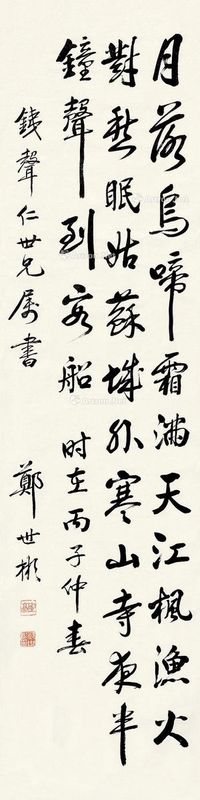 月落烏啼霜滿天江楓漁火
對愁眠姑蘇城外寒山寺夜半
鐘聲到客船 时在丙子仲春
錢聲仁世兄屬書
鄭世彬